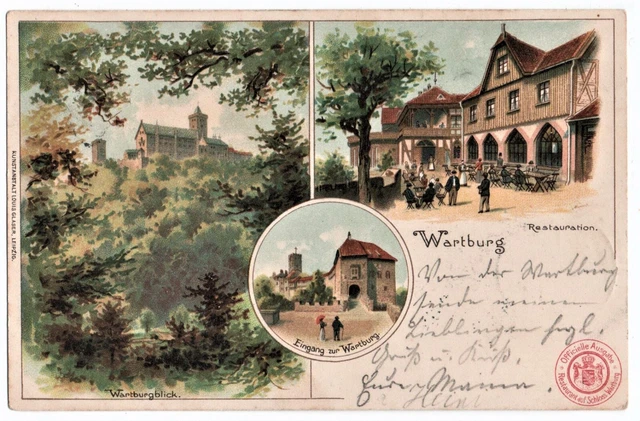 KUNSTANSTALT LOUIS GLASER, LEIPZIG.
Wartburgblick.
Eingang zur Wartburg.
Restauration.
Wartburg
Von der Wartburg
sende meinen
Lieblingen herzl.
Gruß u. Kuß.
Eure Mama.
Officielle Ausgabe
Restaurant auf Schloss Wartburg